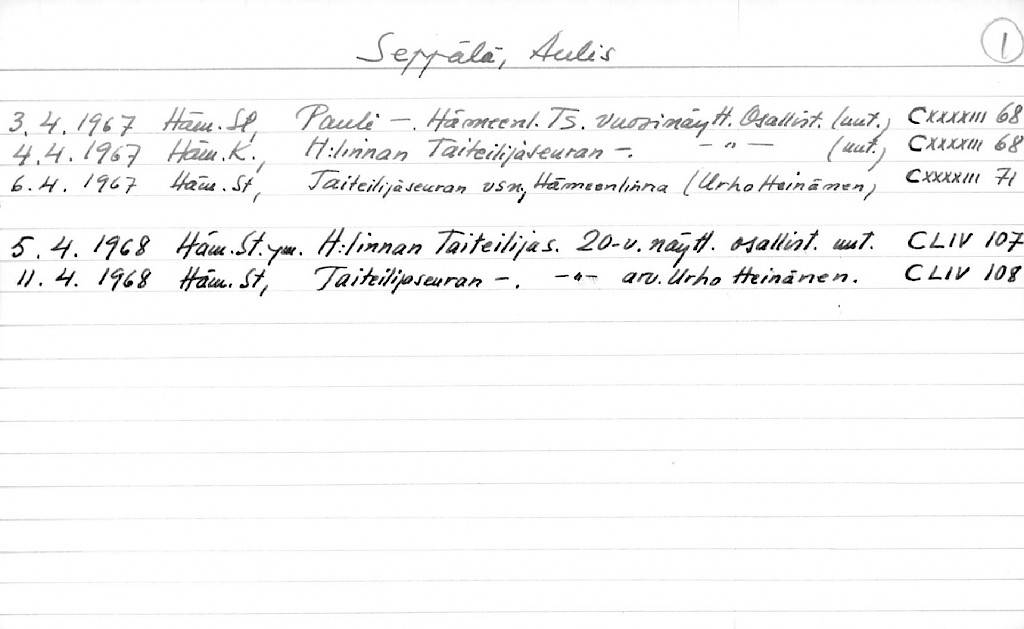 Seppälä, Aulis
1
3. 4. 1967 Häm. St, Pauli -. Hämeenl. Ts. vuosinäytt. Osallist. (uut.) CXXXXIII 68
4. 4. 1967 Häm. K., H:linnan Taiteilijaseuran -. - " - (uut.) CXXXXIII 68
6. 4. 1967 Häm. St, Taiteilijaseuran vsn, Hämeenlinna (Urho Heinänen) CXXXXIII 71
5. 4. 1968 Häm. St. ym. H:linnan Taiteilijas. 20-v. näytt. osallist. uut. CLIV 107
11. 4. 1968 Häm. St, Taiteilijaseuran -. -"- arv. Urho Heinänen. CLIV 108